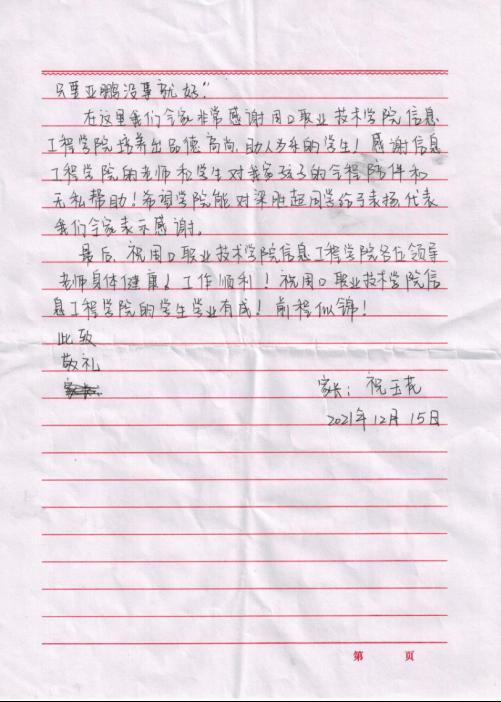 只要亚鹏没事就好"
在这里我们全家非常感谢周口职业技术学院信息
工程学院培养出品德高尚、助人为乐的学生！感谢信息
工程学院的老师和学生对我家孩子的全程陪伴和
无私帮助！希望学院能对梁胜超同学给予表扬代表
我们全家表示感谢。
最后，祝周口职业技术学院信息工程学院各位领导
老师身体健康！工作顺利！祝周口职业技术学院信
息工程学院的学生学业有成！前程似锦！
此致
敬礼
家长：祝玉花
2021年12月15日
第 页